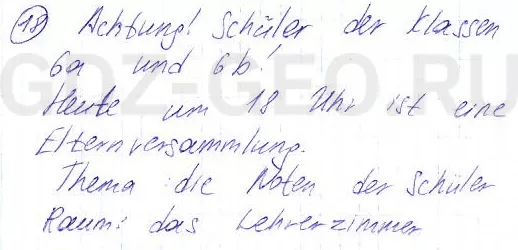 18 Achtung! Schüler der Klassen
6a und 6b!
Heute um 18 Uhr ist eine
Elternversammlung.
Thema die Noten der Schüler
Raum: das Lehrerzimmer
GDZ-GEO.RU